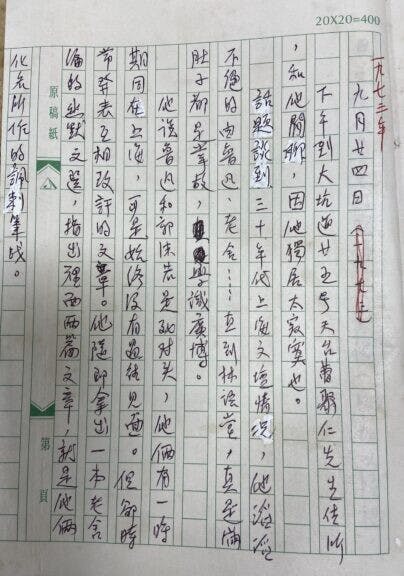 20X20=400
一九七三年
九月廿四日
下午到大坑道廿五号天台曹聚仁先生住所
，和他閒聊，因他獨居太寂寞也。
話題談到三十年代上海文壇情況，他滔滔
不絕的由魯迅、老舍……直到林語堂，真是滿
肚子都是掌故，學識廣博。
他談魯迅和郭沫若是死对头，他倆有一時
期同在上海，可是始終沒有過往見面。但卻時
常發表互相攻訐的文章。他隨即拿出一本老舍
編的幽默文選，指出裡面兩篇文章，就是他倆
原稿紙
第 頁
化名所作的諷刺筆战。